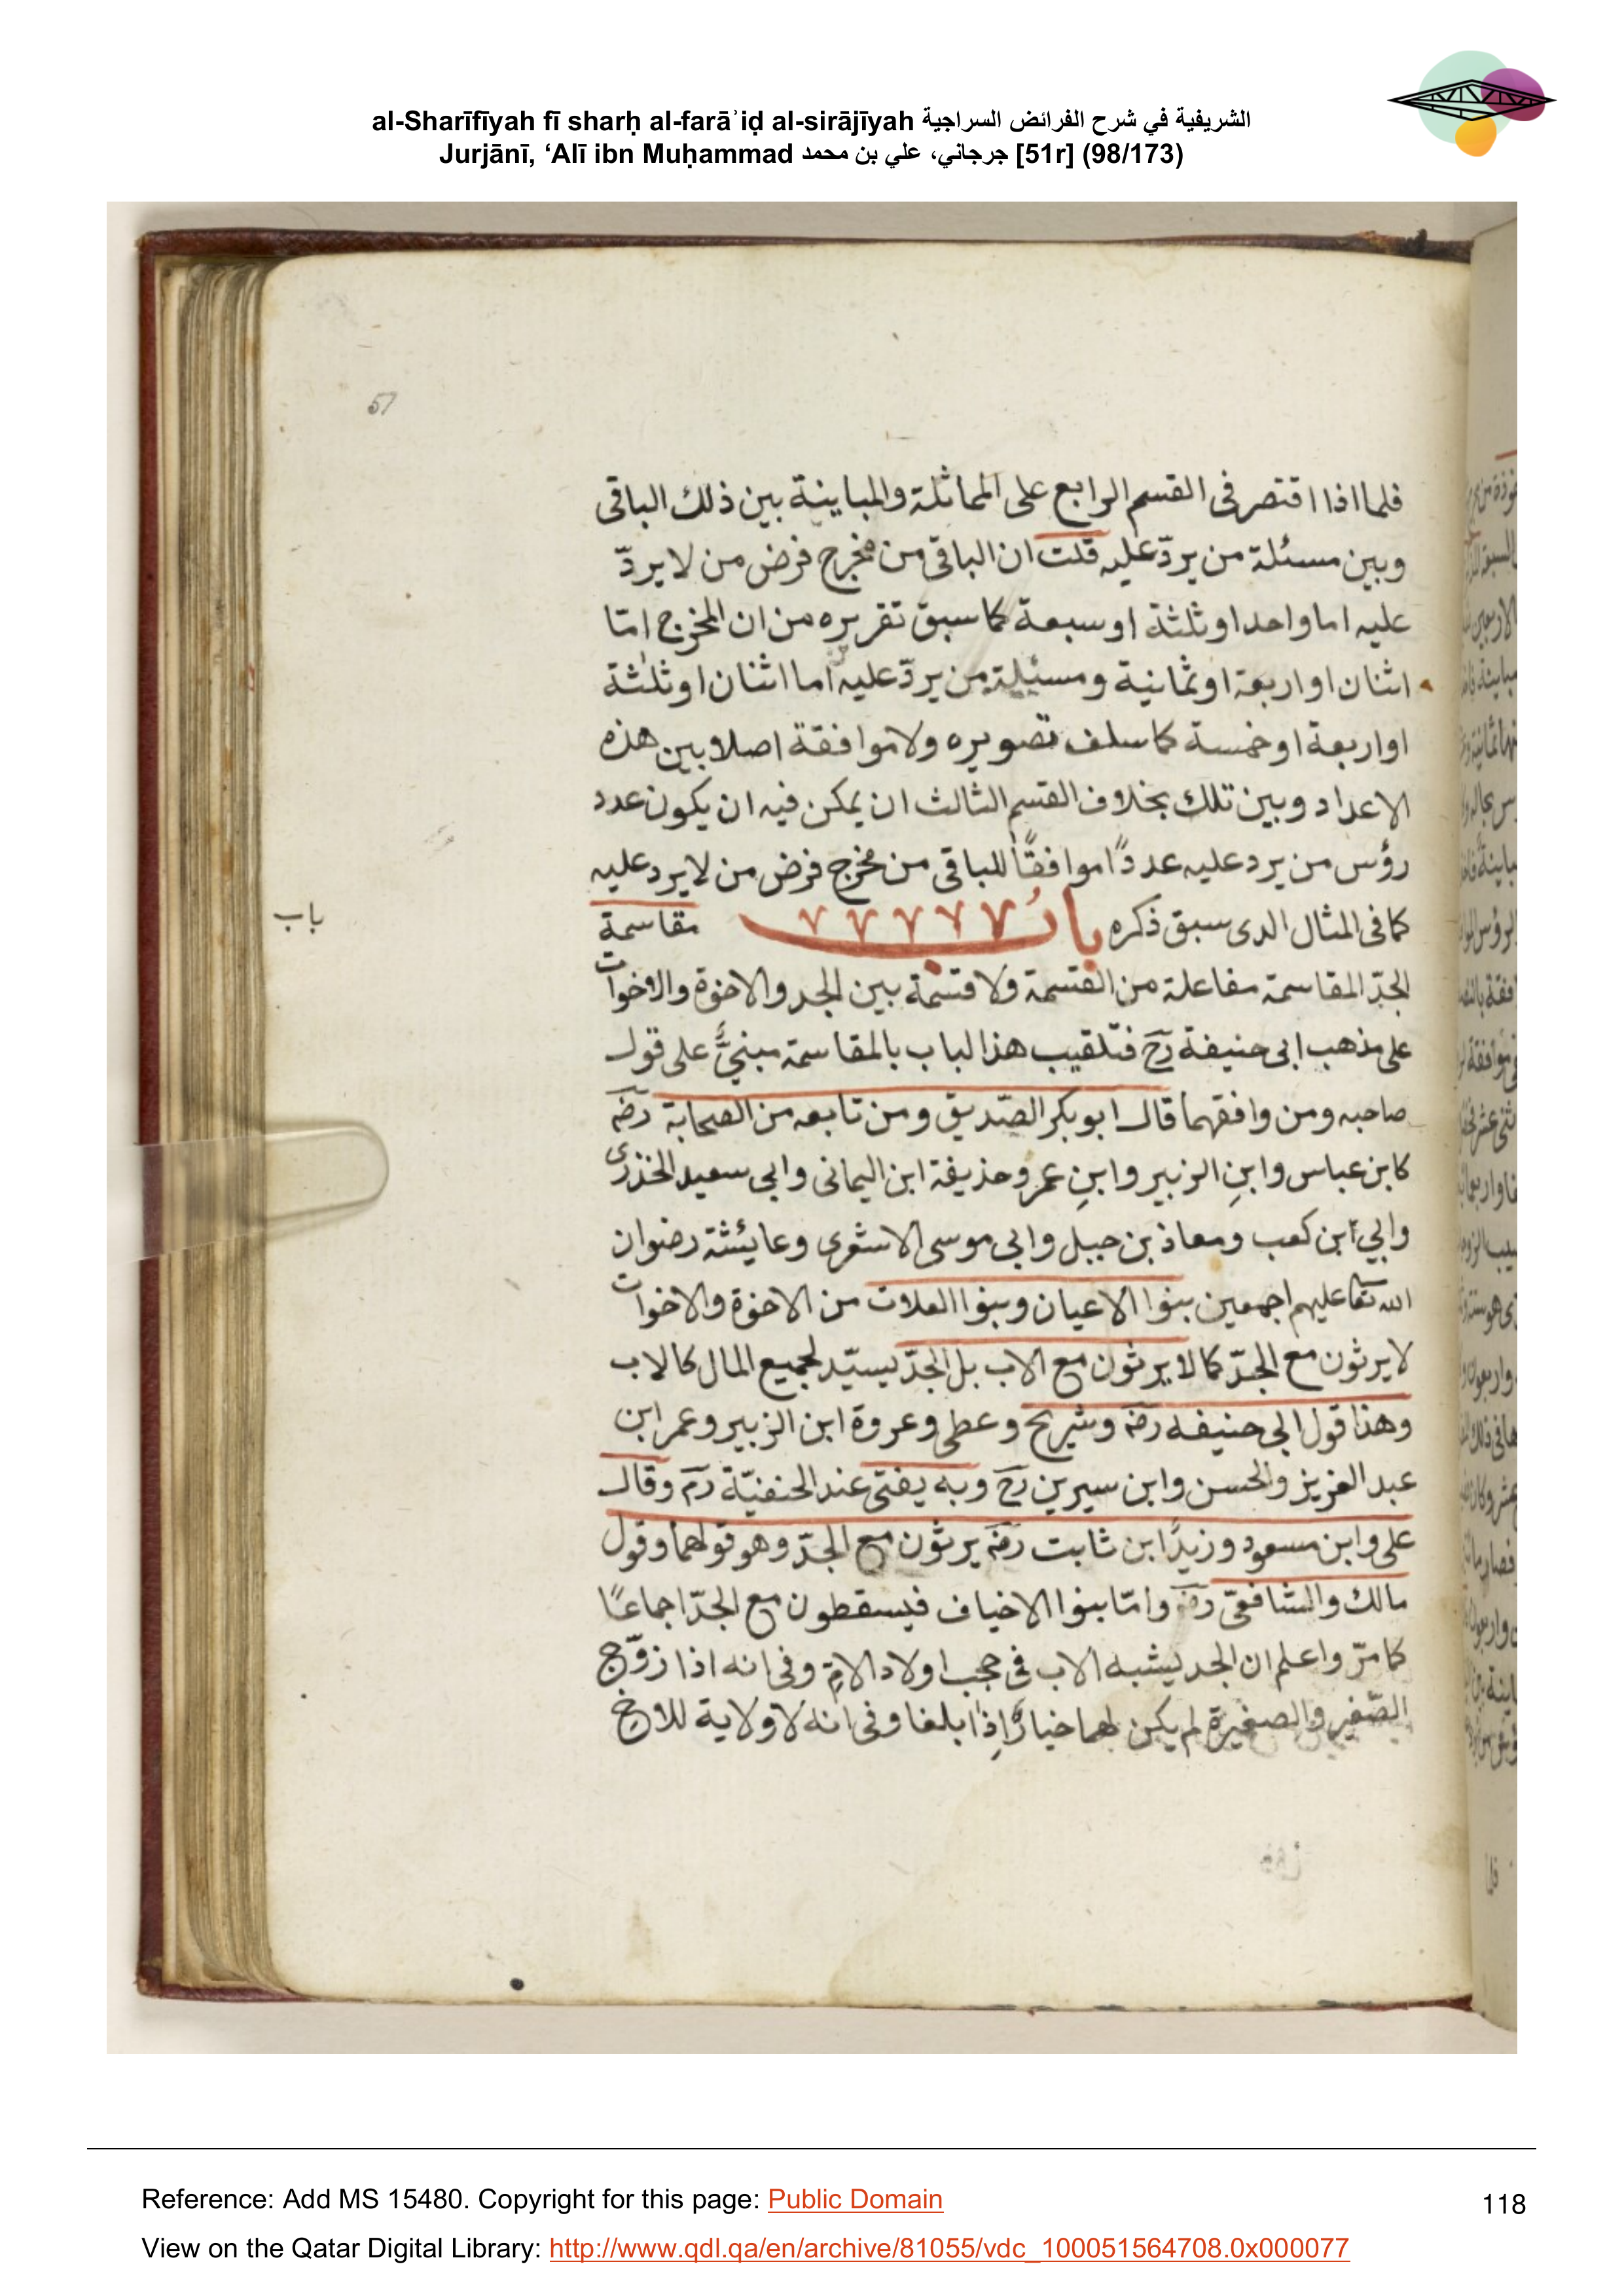 al-Sharīfīyah fī sharḥ al-farāʾiḍ al-sirājīyah الشريفية في شرح الفرائض السراجية
Jurjānī, ‘Alī ibn Muḥammad جرجاني، علي بن محمد [51r] (98/173)
51
فلما اذا اقتصر فى القسم الرابع على المماثلة والمباينة بين ذلك الباقى
وبين مسئلة من يردّ عليه قلت ان الباقى من مخرج فرض من لا يردّ
عليه اما واحد او ثلثة او سبعة كما سبق تقريره من ان المخرج امّا
اثنان او اربعة او ثمانية ومسئلة من يردّ عليه اما اثنان او ثلثة
او اربعة او خمسة كما سلف تصويره ولا موافقة اصلا بين هذه
الاعداد وبين تلك بخلاف القسم الثالث ان يمكن فيه ان يكون عدد
رؤس من يرد عليه عددًا موافقًا للباقى من مخرج فرض من لا يرد عليه
كما فى المثال الدى سبق ذكره باب مقاسمة
باب
الجدّ المقاسمة مفاعلة من القسمة ولا قسمة بين الجد والاخوة والاخوات
على مذهب ابى حنيفة رح فتلقيب هذا الباب بالمقاسمة مبنىٌّ على قول
صاحبه ومن وافقهما قال ابو بكر الصّديق ومن تابعه من الصحابة رضه
كابن عباس وابنِ الزبير وابنِ عمر وحذيفة ابن اليمانى وابى سعيد الخذرى
وابي ابن كعب ومعاذ بن جبل وابى موسى الاشعرى وعايشة رضوان
الله تعا عليهم اجمعين بنوا الاعيان وبنوا العلات من الاخوة والاخوات
لا يرثون مع الجدّ كما لا يرثون مع الاب بل الجدّ يستبد لجميع المال كالاب
وهذا قول ابى حنيفه رضه وشريح وعطى وعروة ابن الزبير وعمر ابن
عبد العزيز والحسن وابن سيرين رح وبه يفتى عند الحنفيّة رم وقال
على وابن مسعود وزيدًا ابن ثابت رضه يرثون مع الجدّ وهو قولهما وقول
مالك والشافعىّ رضه وامّا بنوا الاخياف فيسقطون مع الجدّ اجماعًا
كما مرّ واعلم ان الجد يشبه الاب فى حجب اولاد الامّ وفى انه اذا زوّج
الصّغير والصغيرة لم يكن لهما خيارٌ اِذا بلغا وفى انه لا ولاية للاخ
Reference: Add MS 15480. Copyright for this page: Public Domain
118
View on the Qatar Digital Library: http://www.qdl.qa/en/archive/81055/vdc_100051564708.0x000077